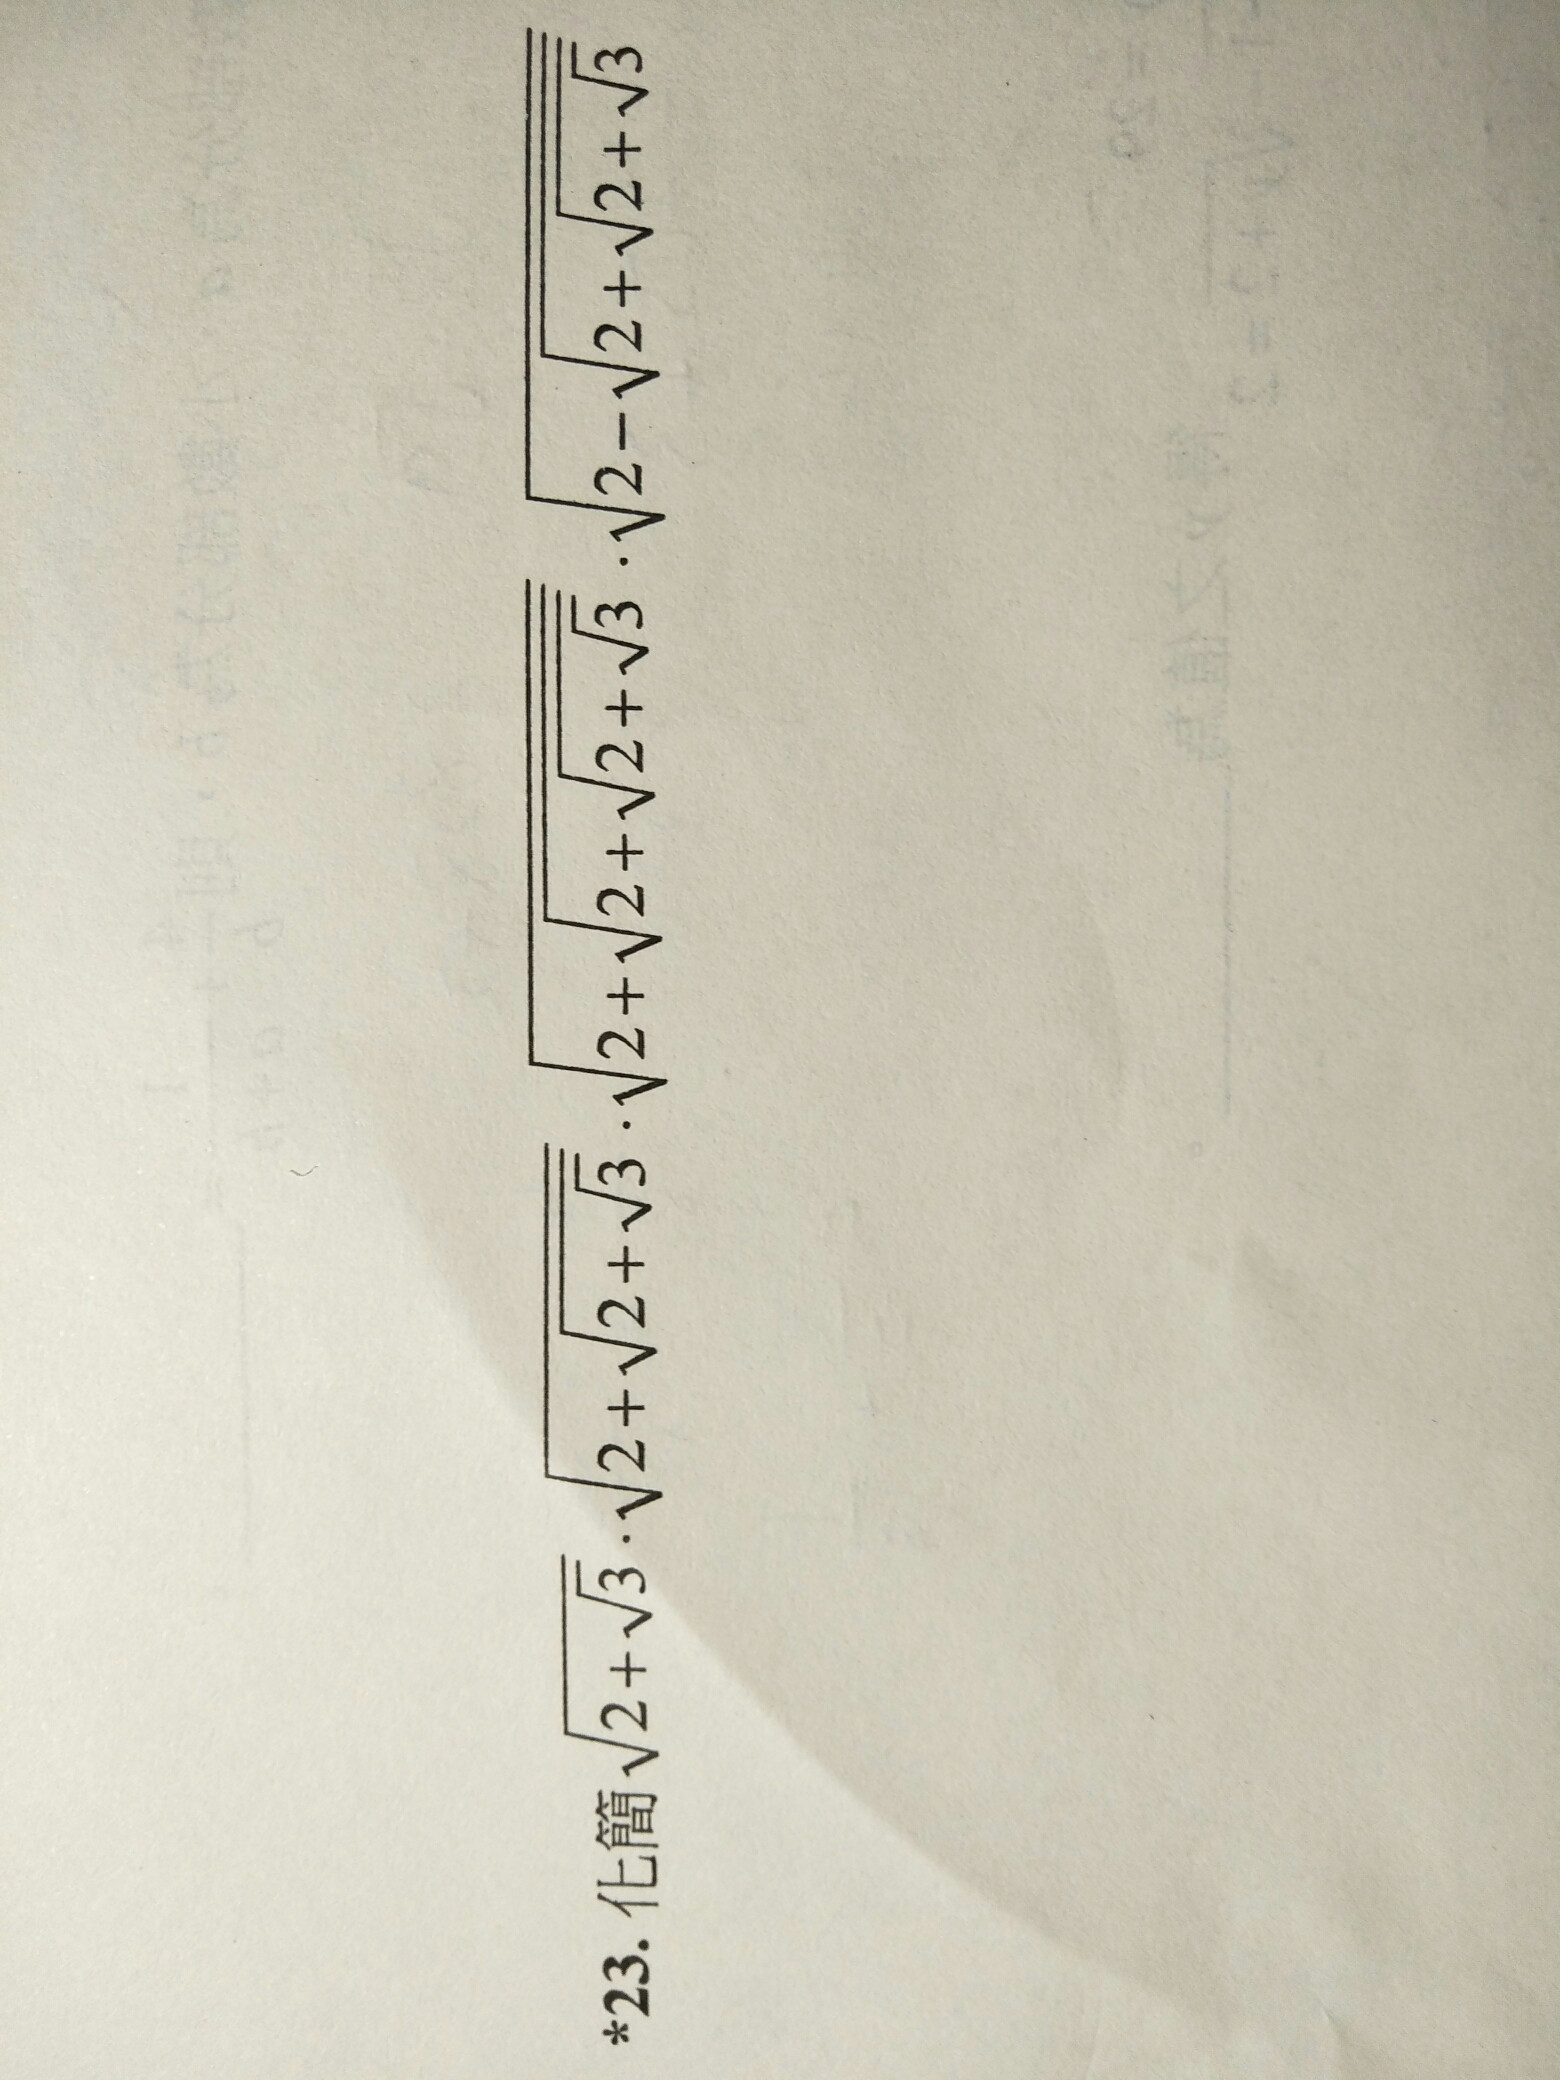 *23. 化簡√(2+√3)·√(2+√(2+√3))·√(2+√(2+√(2+√3)))·√(2−√(2+√(2+√3)))